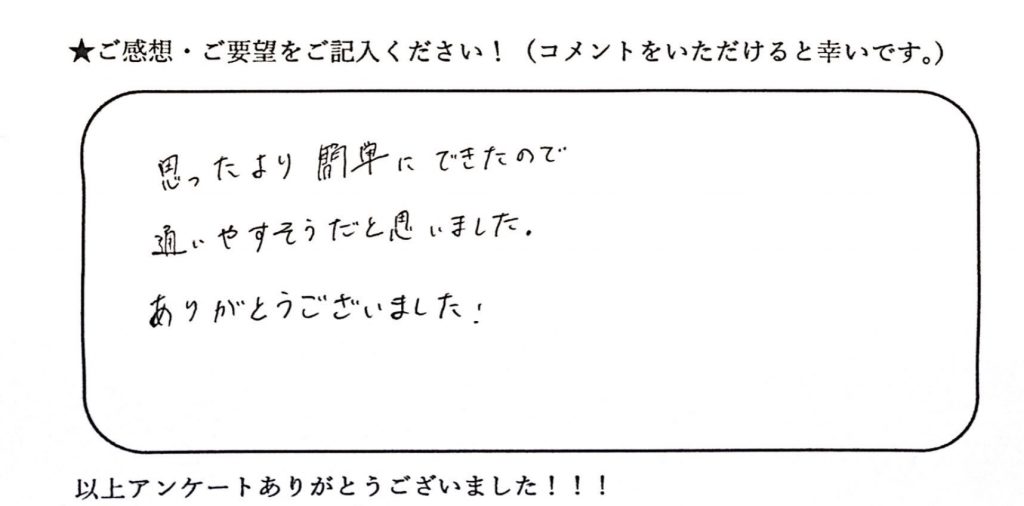 ★ご感想・ご要望をご記入ください！（コメントをいただけると幸いです。）
思ったより簡単にできたので
通いやすそうだと思いました。
ありがとうございました！
以上アンケートありがとうございました！！！